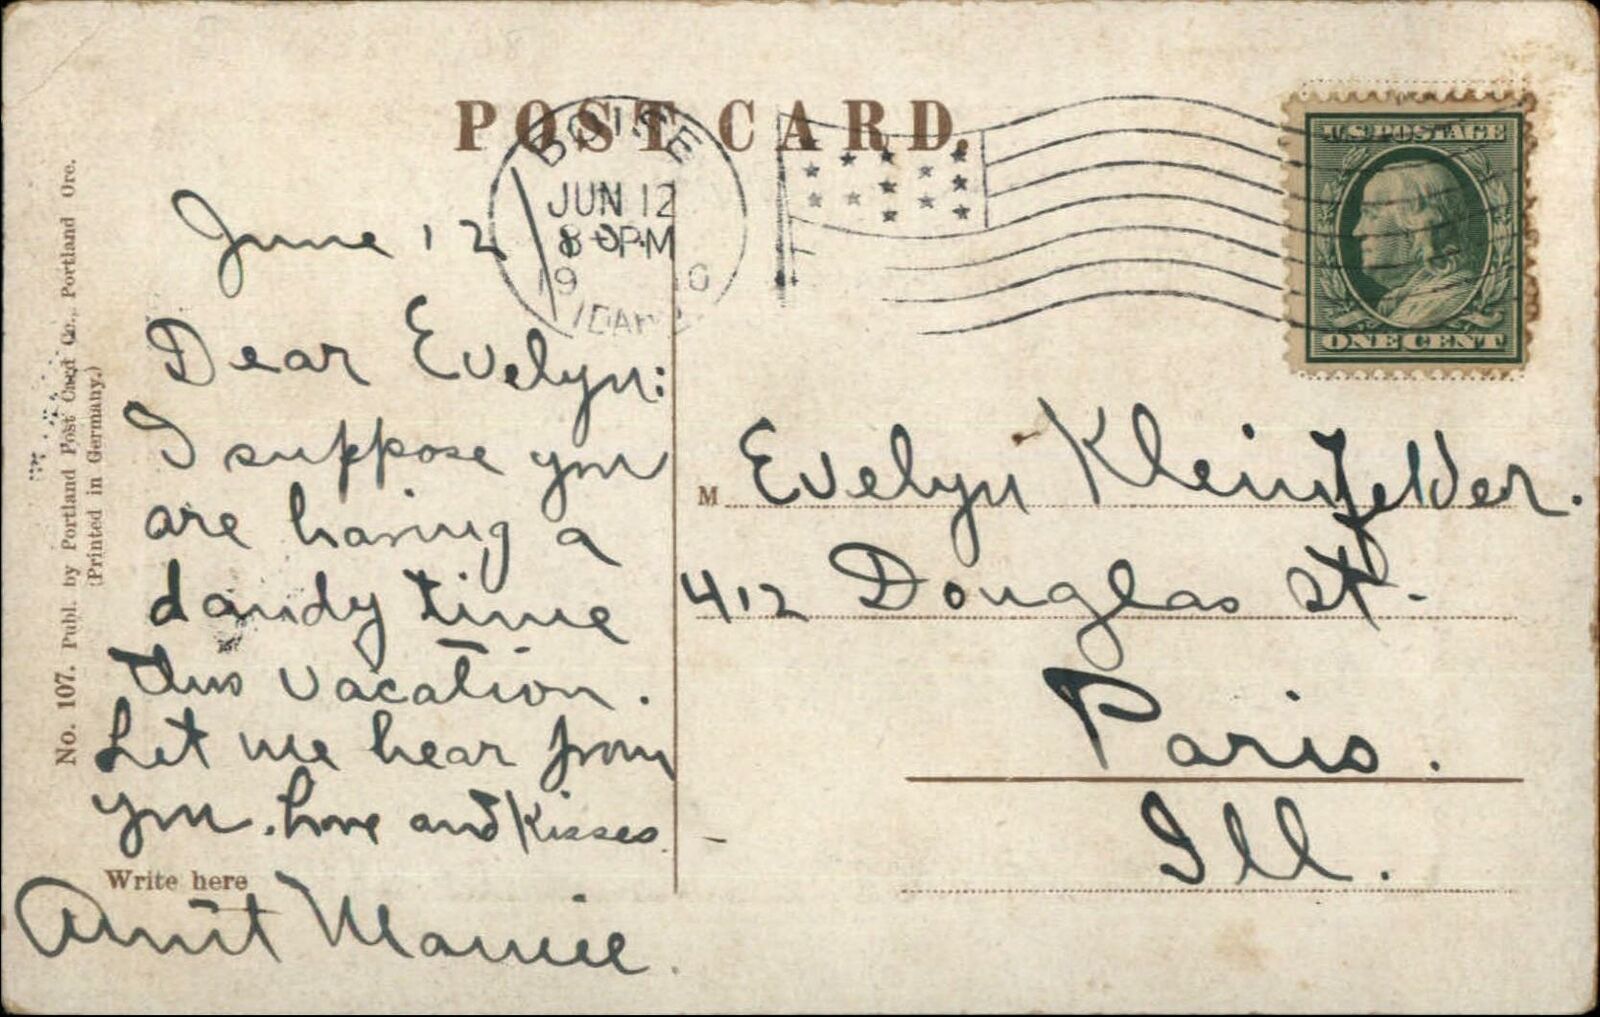 POST CARD.
BOISE
JUN 12
8 - PM
19 10
IDAHO
U.S. POSTAGE
ONE CENT
No. 107. Publ. by Portland Post Card Co., Portland Ore.
(Printed in Germany.)
June 12
Dear Evelyn:
I suppose you
are having a
dandy time
this vacation.
Let me hear from
you. Love and Kisses
Write here
Aunt Mamie.
M Evelyn Kleinfelder.
412 Douglas St.
Paris.
Ill.